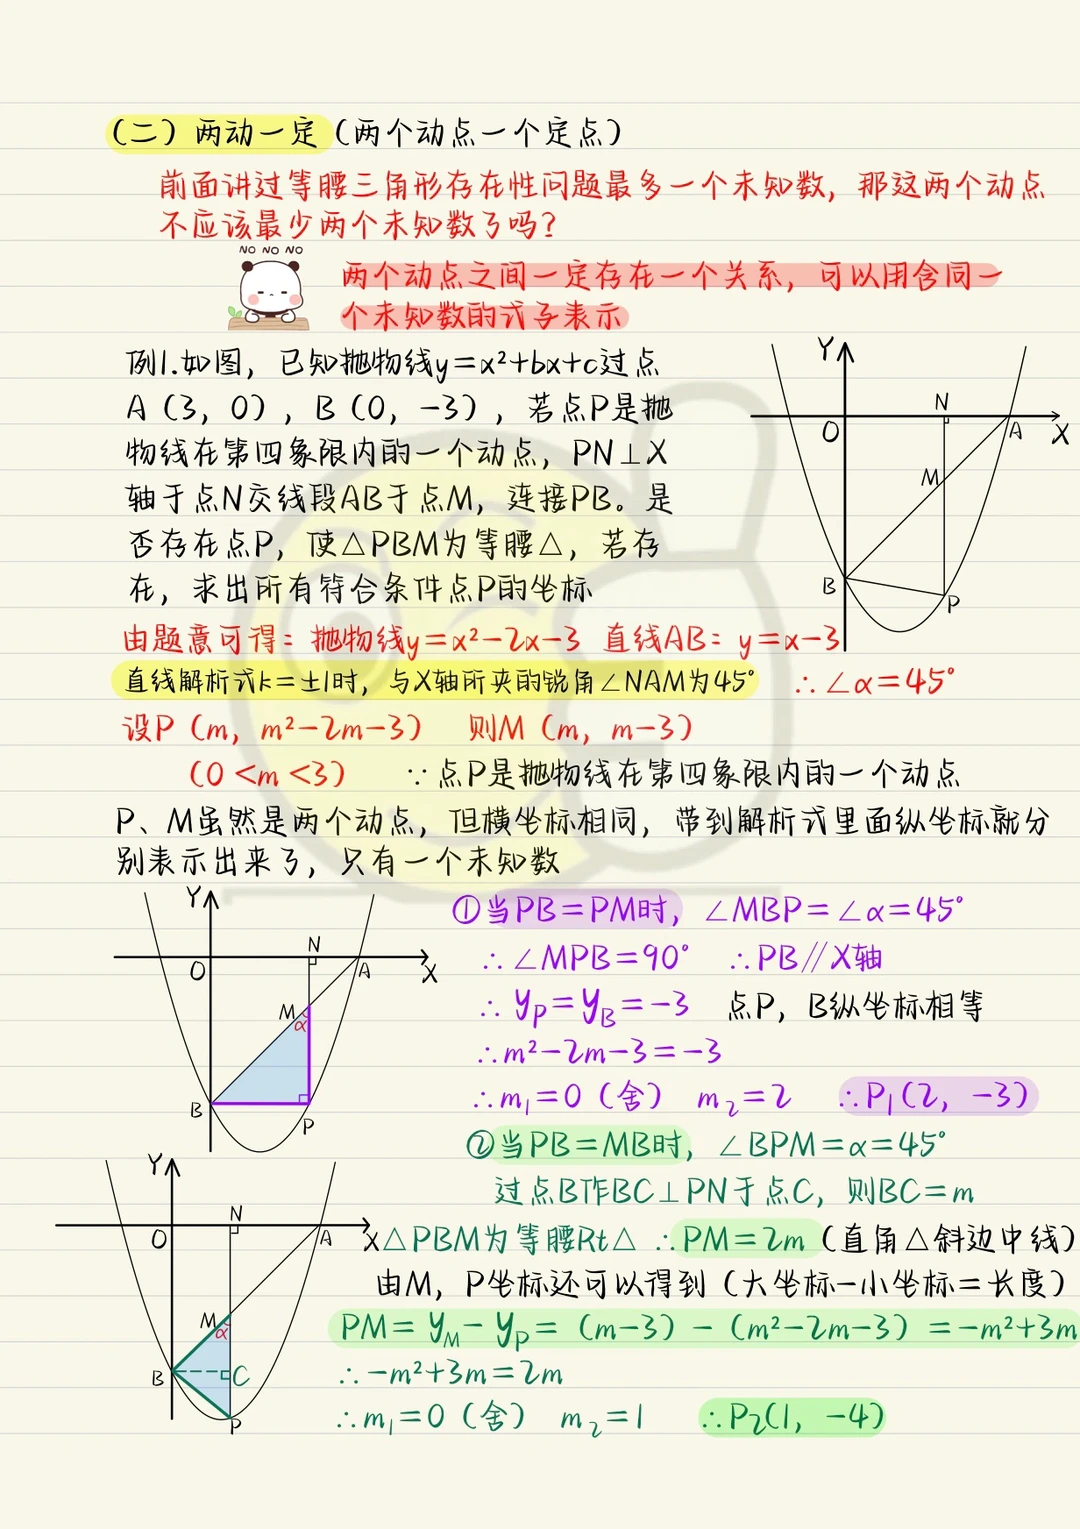 （二）两动一定（两个动点一个定点）
前面讲过等腰三角形存在性问题最多一个未知数，那这两个动点
不应该最少两个未知数了吗？
NO NO NO
两个动点之间一定存在一个关系，可以用含同一
个未知数的式子表示
例1.如图，已知抛物线y=x²+bx+c过点
A（3，0），B（0，-3），若点P是抛
物线在第四象限内的一个动点，PN⊥X
轴于点N交线段AB于点M，连接PB。是
否存在点P，使△PBM为等腰△，若存
在，求出所有符合条件点P的坐标
Y
N
O
A
X
M
B
P
由题意可得：抛物线y=x²-2x-3 直线AB：y=x-3
直线解析式k=±1时，与X轴所夹的锐角∠NAM为45° ∴∠α=45°
设P（m，m²-2m-3） 则M（m，m-3）
（0<m<3） ∵点P是抛物线在第四象限内的一个动点
P、M虽然是两个动点，但横坐标相同，带到解析式里面纵坐标就分
别表示出来了，只有一个未知数
Y
N
O
A
X
M
α
B
P
①当PB=PM时，∠MBP=∠α=45°
∴∠MPB=90° ∴PB∥X轴
∴y_P=y_B=-3 点P，B纵坐标相等
∴m²-2m-3=-3
∴m₁=0（舍） m₂=2 ∴P₁(2，-3)
②当PB=MB时，∠BPM=α=45°
过点B作BC⊥PN于点C，则BC=m
Y
N
O
A
X
M
α
B
C
P
△PBM为等腰Rt△ ∴PM=2m（直角△斜边中线）
由M，P坐标还可以得到（大坐标-小坐标=长度）
PM=y_M-y_P=（m-3）-（m²-2m-3）=-m²+3m
∴-m²+3m=2m
∴m₁=0（舍） m₂=1 ∴P₂(1，-4)